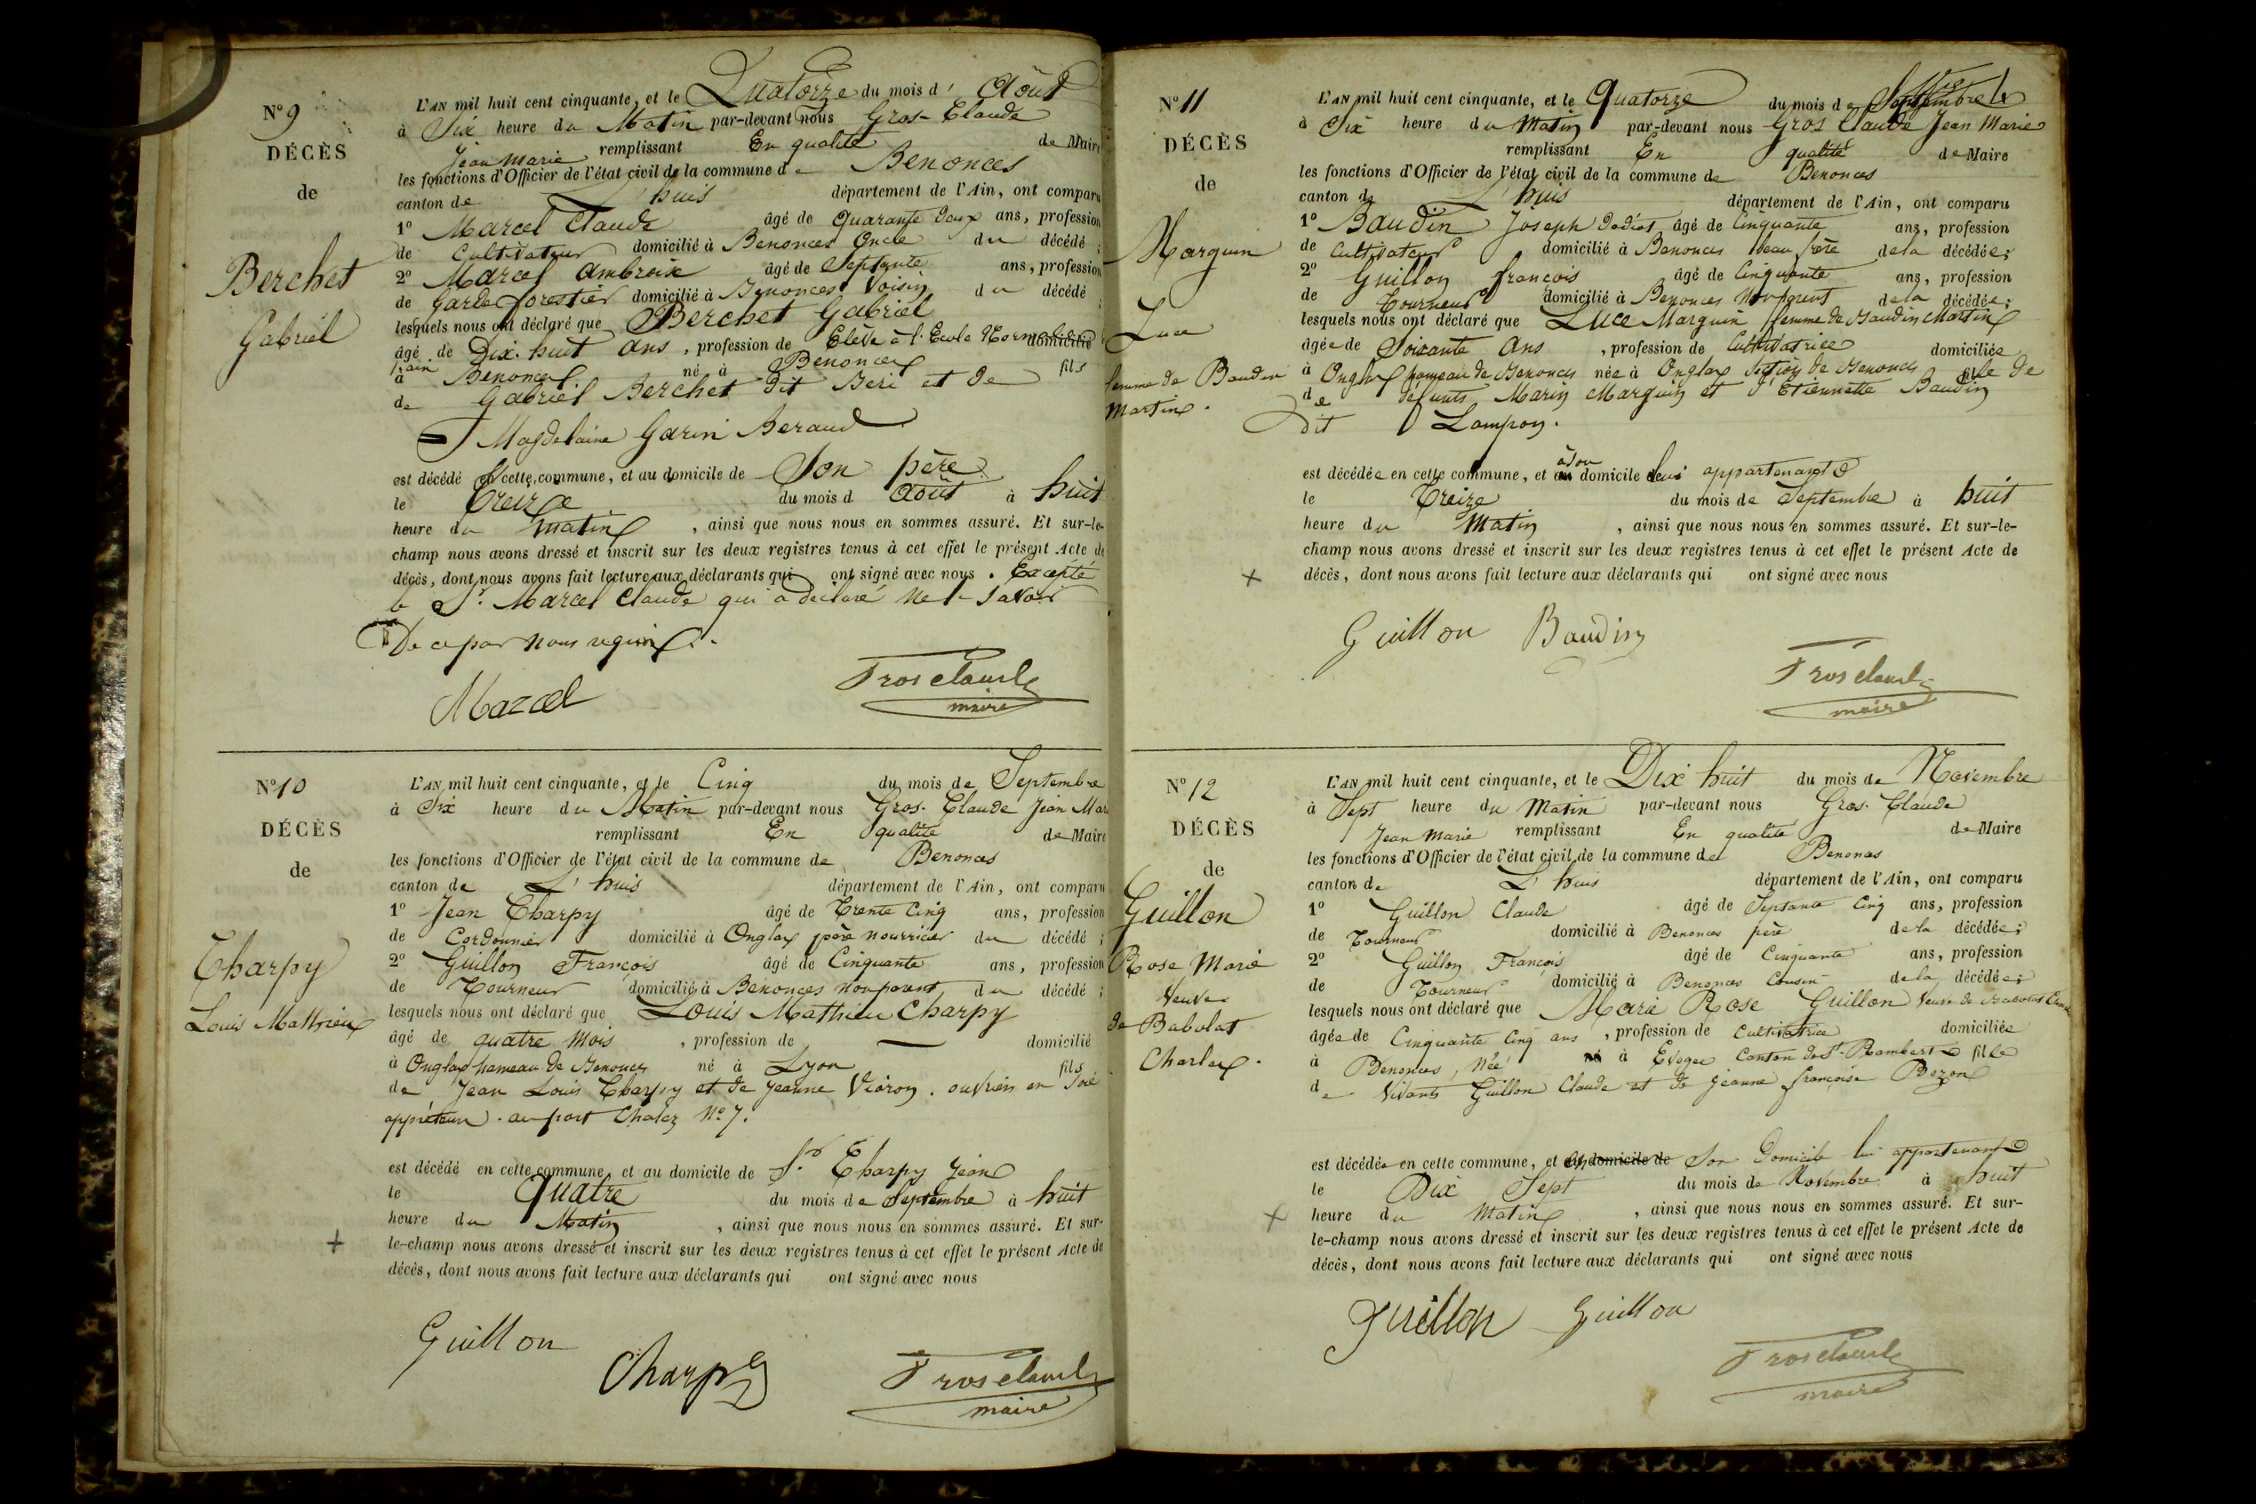 N° 9
DÉCÈS
de
Berchet
Gabriel
L'AN mil huit cent cinquante, et le Quatorze du mois d' Août
à Six heure du Matin par-devant nous Gros-Claude
Jean Marie remplissant En qualité de Maire
les fonctions d'Officier de l'état civil de la commune de Benonces
canton de L'huis département de l'Ain, ont comparu
1° Marcel Claude âgé de Quarante deux ans, profession
de Cultivateur domicilié à Benonces Oncle du décédé ;
2° Marcel Ambroise âgé de Septante ans, profession
de garde forestier domicilié à Benonces Voisin du décédé ;
lesquels nous ont déclaré que Berchet Gabriel
âgé de Dix-huit ans, profession de Elève à l'Ecole Normale domicilié
à Benonces né à Benonces fils
de Gabriel Berchet dit et de
Magdelaine Garin Beraud
est décédé en cette commune, et au domicile de Son père
le treize du mois d Août à huit
heure du matin, ainsi que nous nous en sommes assuré. Et sur-le-
champ nous avons dressé et inscrit sur les deux registres tenus à cet effet le présent Acte de
décès, dont nous avons fait lecture aux déclarants qui ont signé avec nous. Excepté
le Sr. Marcel Claude qui a declaré ne le savoir
De ce par nous requis.
Marcel Grosclaude
maire
N° 10
DÉCÈS
de
Charpy
Louis Mathieu
L'AN mil huit cent cinquante, et le Cinq du mois de Septembre
à Six heure du Matin par-devant nous Gros-Claude Jean Mar
remplissant En qualité de Maire
les fonctions d'Officier de l'état civil de la commune de Benonces
canton de L'huis département de l'Ain, ont comparu
1° Jean Charpy âgé de Trente Cinq ans, profession
de Cordonnier domicilié à Onglas père nourricier du décédé ;
2° Guillon François âgé de Cinquante ans, profession
de Tourneur domicilié à Benonces Non parent du décédé ;
lesquels nous ont déclaré que Louis Mathieu Charpy
âgé de quatre Mois, profession de — domicilié
à Onglas hameau de Benonces né à Lyon fils
de Jean Louis Charpy et de Jeanne Viéron. ouvriers en Soie
appréteur. au port Chalez N° 7.
est décédé en cette commune, et au domicile de Sr. Charpy Jean
le Quatre du mois de Septembre à huit
heure du Matin, ainsi que nous nous en sommes assuré. Et sur-
le-champ nous avons dressé et inscrit sur les deux registres tenus à cet effet le présent Acte de
décès, dont nous avons fait lecture aux déclarants qui ont signé avec nous
Guillon
Charpy Grosclaude
maire
N° 11
DÉCÈS
de
Marguin
Luce
femme de Baudin
Martin.
L'AN mil huit cent cinquante, et le Quatorze du mois de Septembre
à Six heure du Matin par-devant nous Gros Claude Jean Marie
remplissant En qualité de Maire
les fonctions d'Officier de l'état civil de la commune de Benonces
canton de L'huis département de l'Ain, ont comparu
1° Baudin Joseph âgé de Cinquante ans, profession
de Cultivateur domicilié à Benonces beau frère de la décédée;
2° Guillon françois âgé de Cinquante ans, profession
de Tourneur domicilié à Benonces Non parent de la décédée;
lesquels nous ont déclaré que Luce Marguin femme de Baudin Martin
âgée de Soixante Ans, profession de Cultivatrice domiciliée
à Onglas hameau de Benonces née à Onglas Section de Benonces fille de
de défunts Marin Marguin et d'Etiennette Baudin
dit Lampon.
est décédée en cette commune, et à son au domicile lui appartenant
le Treize du mois de Septembre à huit
heure du Matin, ainsi que nous nous en sommes assuré. Et sur-le-
champ nous avons dressé et inscrit sur les deux registres tenus à cet effet le présent Acte de
décès, dont nous avons fait lecture aux déclarants qui ont signé avec nous
Guillon Baudin
Grosclaude
maire
N° 12
DÉCÈS
de
Guillon
Rose Marie
Veuve
de Babolat
Charles.
L'AN mil huit cent cinquante, et le Dix huit du mois de Novembre
à Sept heure du Matin par-devant nous Gros-Claude
Jean Marie remplissant En qualité de Maire
les fonctions d'Officier de l'état civil de la commune de Benonces
canton de L'huis département de l'Ain, ont comparu
1° Guillon Claude âgé de Septante Cinq ans, profession
de Tourneur domicilié à Benonces père de la décédée;
2° Guillon François âgé de Cinquante ans, profession
de Tourneur domicilié à Benonces Cousin de la décédée;
lesquels nous ont déclaré que Marie Rose Guillon Veuve de Babolat
âgée de Cinquante Cinq ans, profession de Cultivatrice domiciliée
à Benonces, Née à Evoges Canton de St. Rambert fille
de Vivants Guillon Claude et de Jeanne françoise Bozon
est décédée en cette commune, et au domicile de Son Domicile lui appartenant
le Dix Sept du mois de Novembre à huit
heure du Matin, ainsi que nous nous en sommes assuré. Et sur-
le-champ nous avons dressé et inscrit sur les deux registres tenus à cet effet le présent Acte de
décès, dont nous avons fait lecture aux déclarants qui ont signé avec nous
Guillon Guillon
Grosclaude
maire